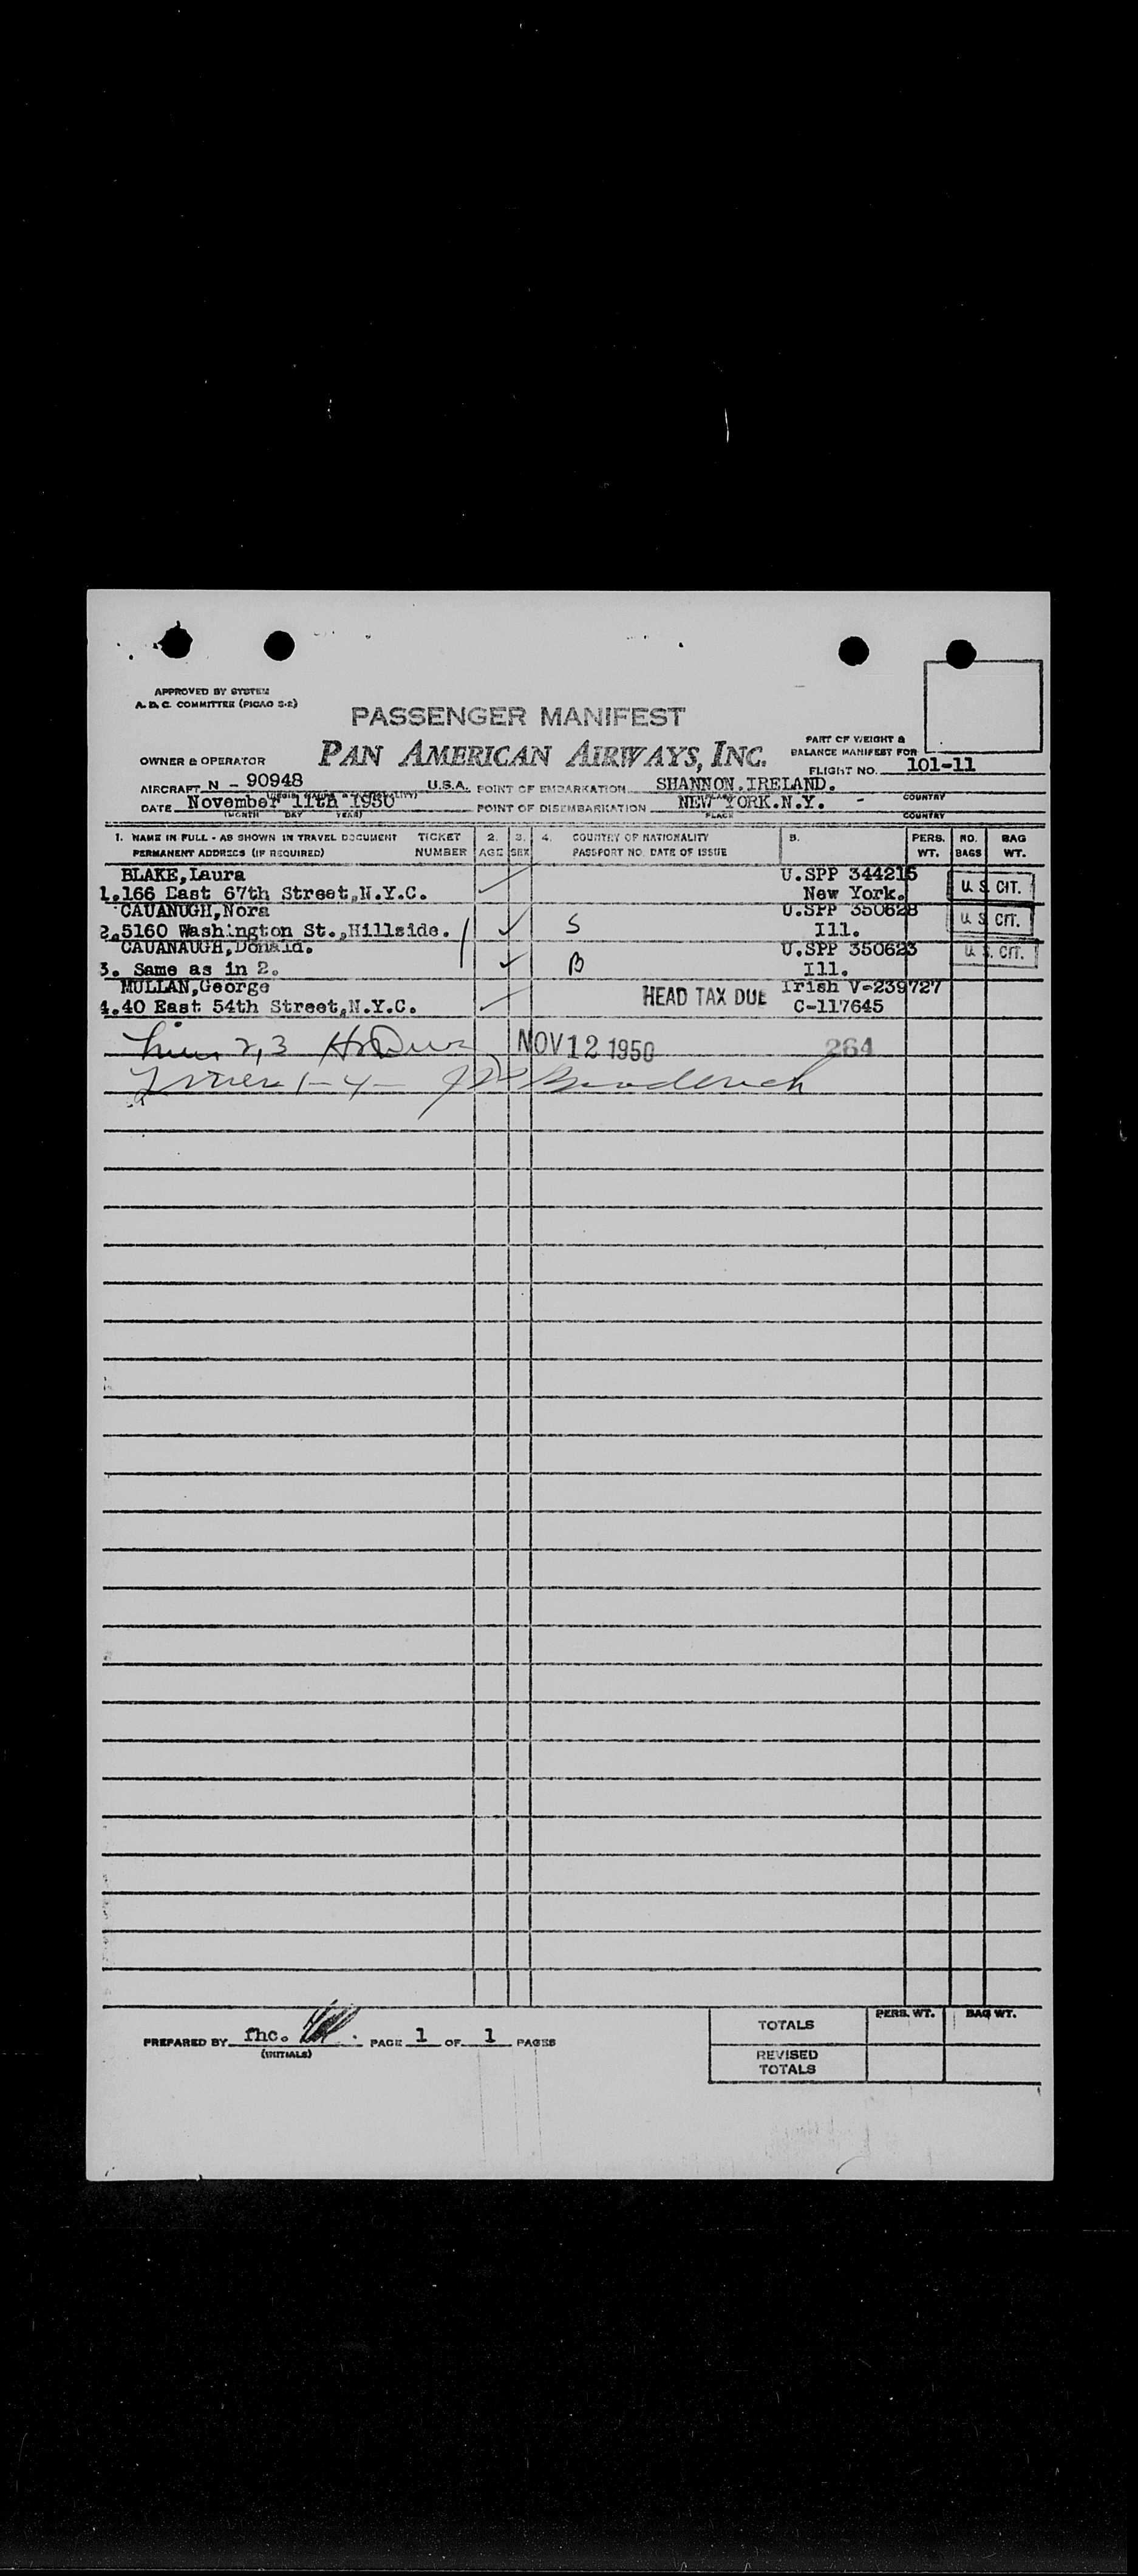 APPROVED BY SYSTEM
A. D. C. COMMITTEE (PICAO S-2)
PASSENGER MANIFEST
PAN AMERICAN AIRWAYS, INC.
PART OF WEIGHT &
BALANCE MANIFEST FOR
OWNER & OPERATOR
FLIGHT NO. 101-11
AIRCRAFT N - 90948 U.S.A. POINT OF EMBARKATION SHANNON.IRELAND.
COUNTRY
DATE November 11th 1950 POINT OF DISEMBARKATION NEW YORK.N.Y. -
(MONTH DAY YEAR) PLACE COUNTRY
1. NAME IN FULL - AS SHOWN IN TRAVEL DOCUMENT TICKET 2. 3. 4. COUNTRY OF NATIONALITY 5. PERS. NO. BAG
PERMANENT ADDRESS (IF REQUIRED) NUMBER AGE SEX PASSPORT NO. DATE OF ISSUE WT. BAGS WT.
BLAKE,Laura U.SPP 344215
1.166 East 67th Street,N.Y.C. New York. U. S. CIT.
CAUANUGH,Nora U.SPP 350628
2.5160 Washington St.,Hillside. S Ill. U. S. CIT.
CAUANAUGH,Donald. U.SPP 350623 U. S. CIT.
3. Same as in 2. B Ill.
MULLAN,George Irish V-239727
4.40 East 54th Street,N.Y.C. HEAD TAX DUE C-117645
2,3 NOV 12 1950 264
Lines 1-4
PREPARED BY fhc. PAGE 1 OF 1 PAGES
(INITIALS)
PERS. WT. BAG WT.
TOTALS
REVISED
TOTALS